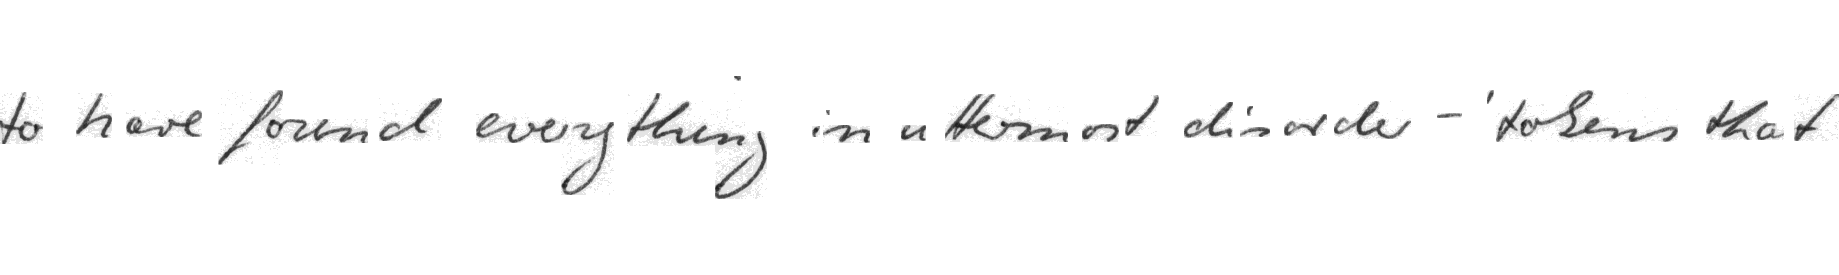 to have found everything in uttermost disorder - 'tokens that